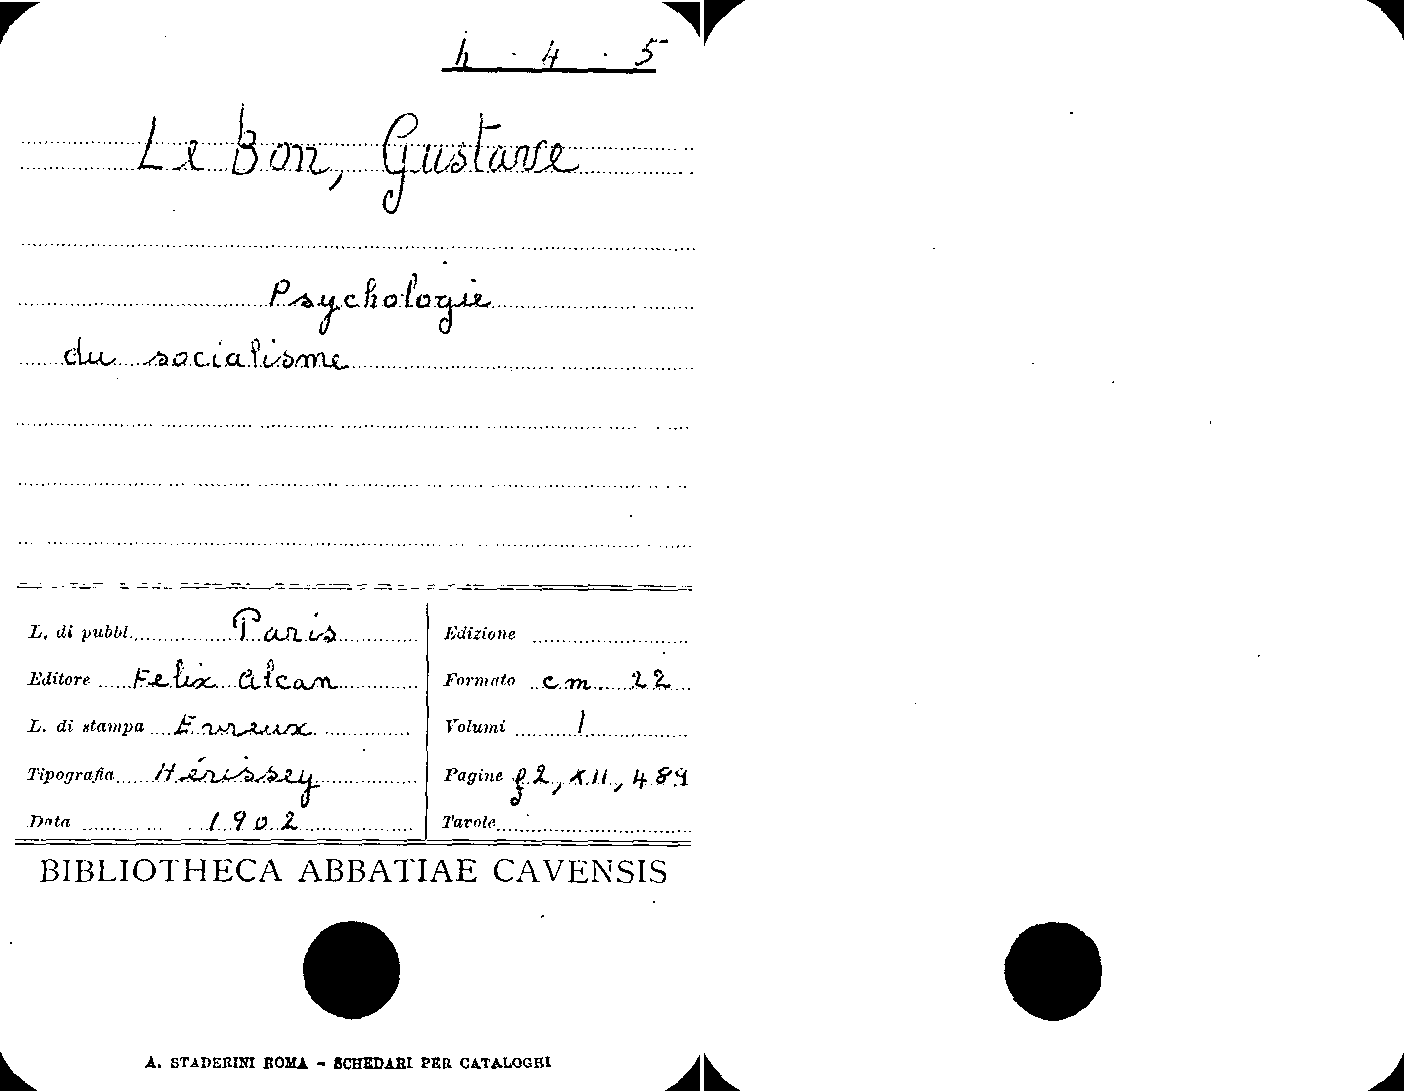 h · 4 · 5
Le Bon, Gustave
Psychologie
du socialisme
L. di pubbl. Paris
Editore Felix Alcan
L. di stampa Evreux
Tipografia Hérissey
Data 1902
Edizione
Formato cm 22
Volumi 1
Pagine f 2, XII, 489
Tavole
BIBLIOTHECA ABBATIAE CAVENSIS
A. STADERINI ROMA - SCHEDARI PER CATALOGHI